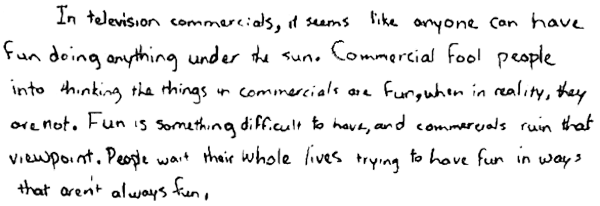 In television commercials, it seems like anyone can have
fun doing anything under the sun. Commercial fool people
into thinking the things in commercials are fun, when in reality, they
are not. Fun is something difficult to have, and commercials ruin that
viewpoint. People wait their whole lives trying to have fun in ways
that aren't always fun.